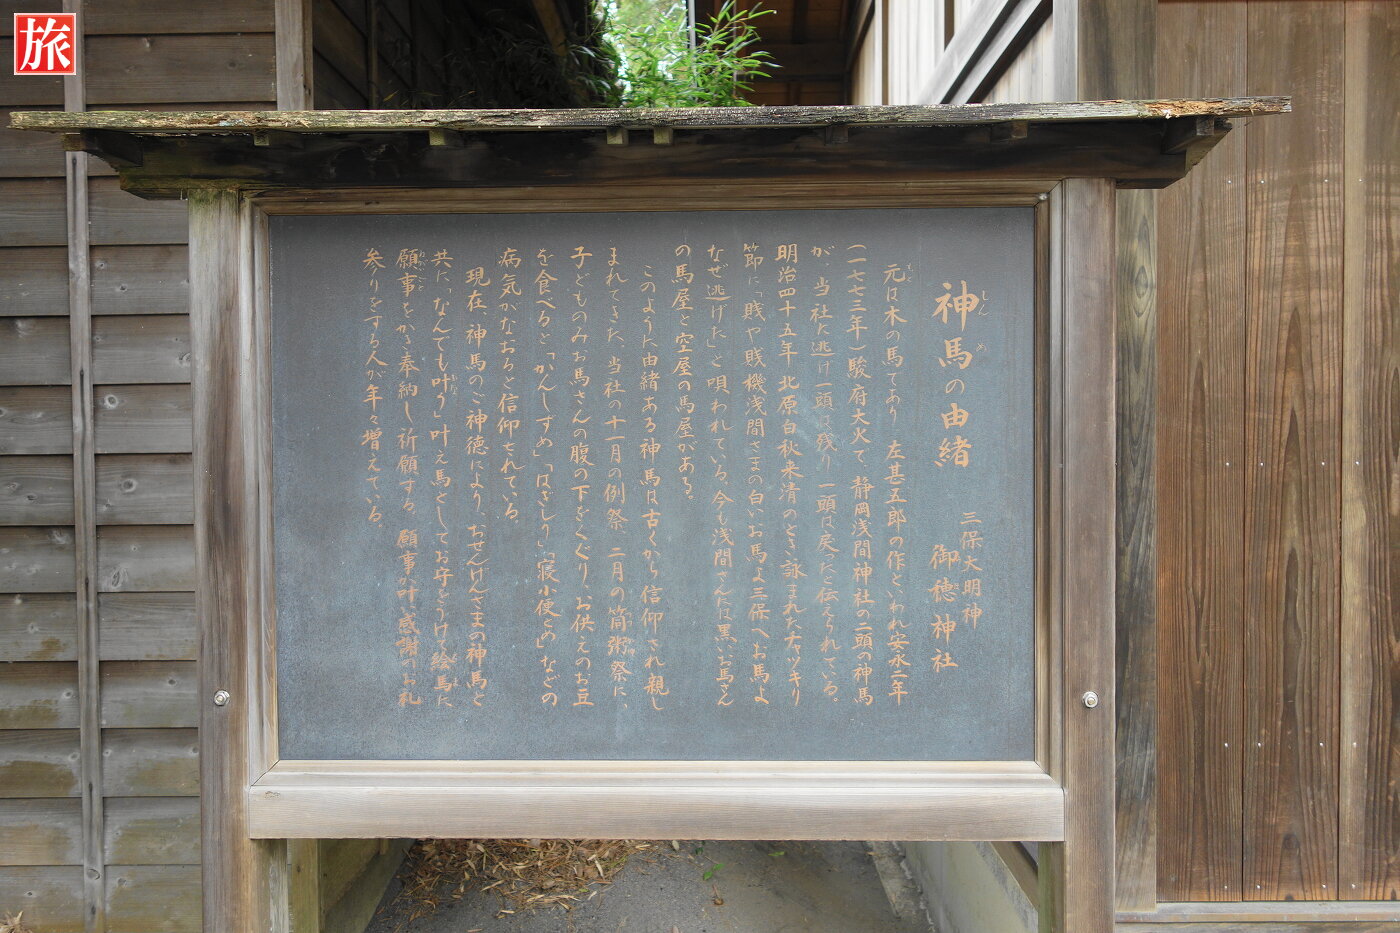 旅
神馬の由緒
しんめ
三保大明神
御穂神社
元は木の馬であり 左甚五郎の作といわれ安永二年
もと
(一七七三年)駿府大火で、静岡浅間神社の二頭の神馬
が、当社に逃げ一頭は残り、一頭は戻ったと伝えられている。
明治四十五年 北原白秋来清のとき詠まれたチャッキリ
節に「賤や賤機浅間さまの白いお馬よ三保へお馬よ
なぜ逃げた」と唄われている。今も浅間さんには黒いお馬さん
の馬屋と空屋の馬屋がある。
このように由緒ある神馬は古くから信仰され親し
まれてきた、当社の十一月の例祭、二月の筒粥祭に、
子どものみお馬さんの腹の下をくぐり、お供えのお豆
を食べると「かんしずめ」「はぎしり」「寝小便とめ」などの
病気がなおると信仰されている。
現在、神馬のご神徳により、おせんげんさまの神馬と
共に、なんでも叶う」叶え馬としてお守をうけて絵馬に
願事をかき奉納し祈願する、願事が叶い感謝のお礼
参りをする人が年々増えている。